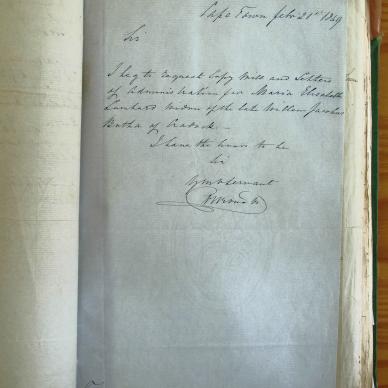 Cape Town Feb 21st 1849
Sir
I beg to request Copy Will and Letters
of Administration for Maria Elizabeth
Lombard widow of the late Willem Jacobus
Botha of Cradock. —
I have the honor to be
Sir
Servant